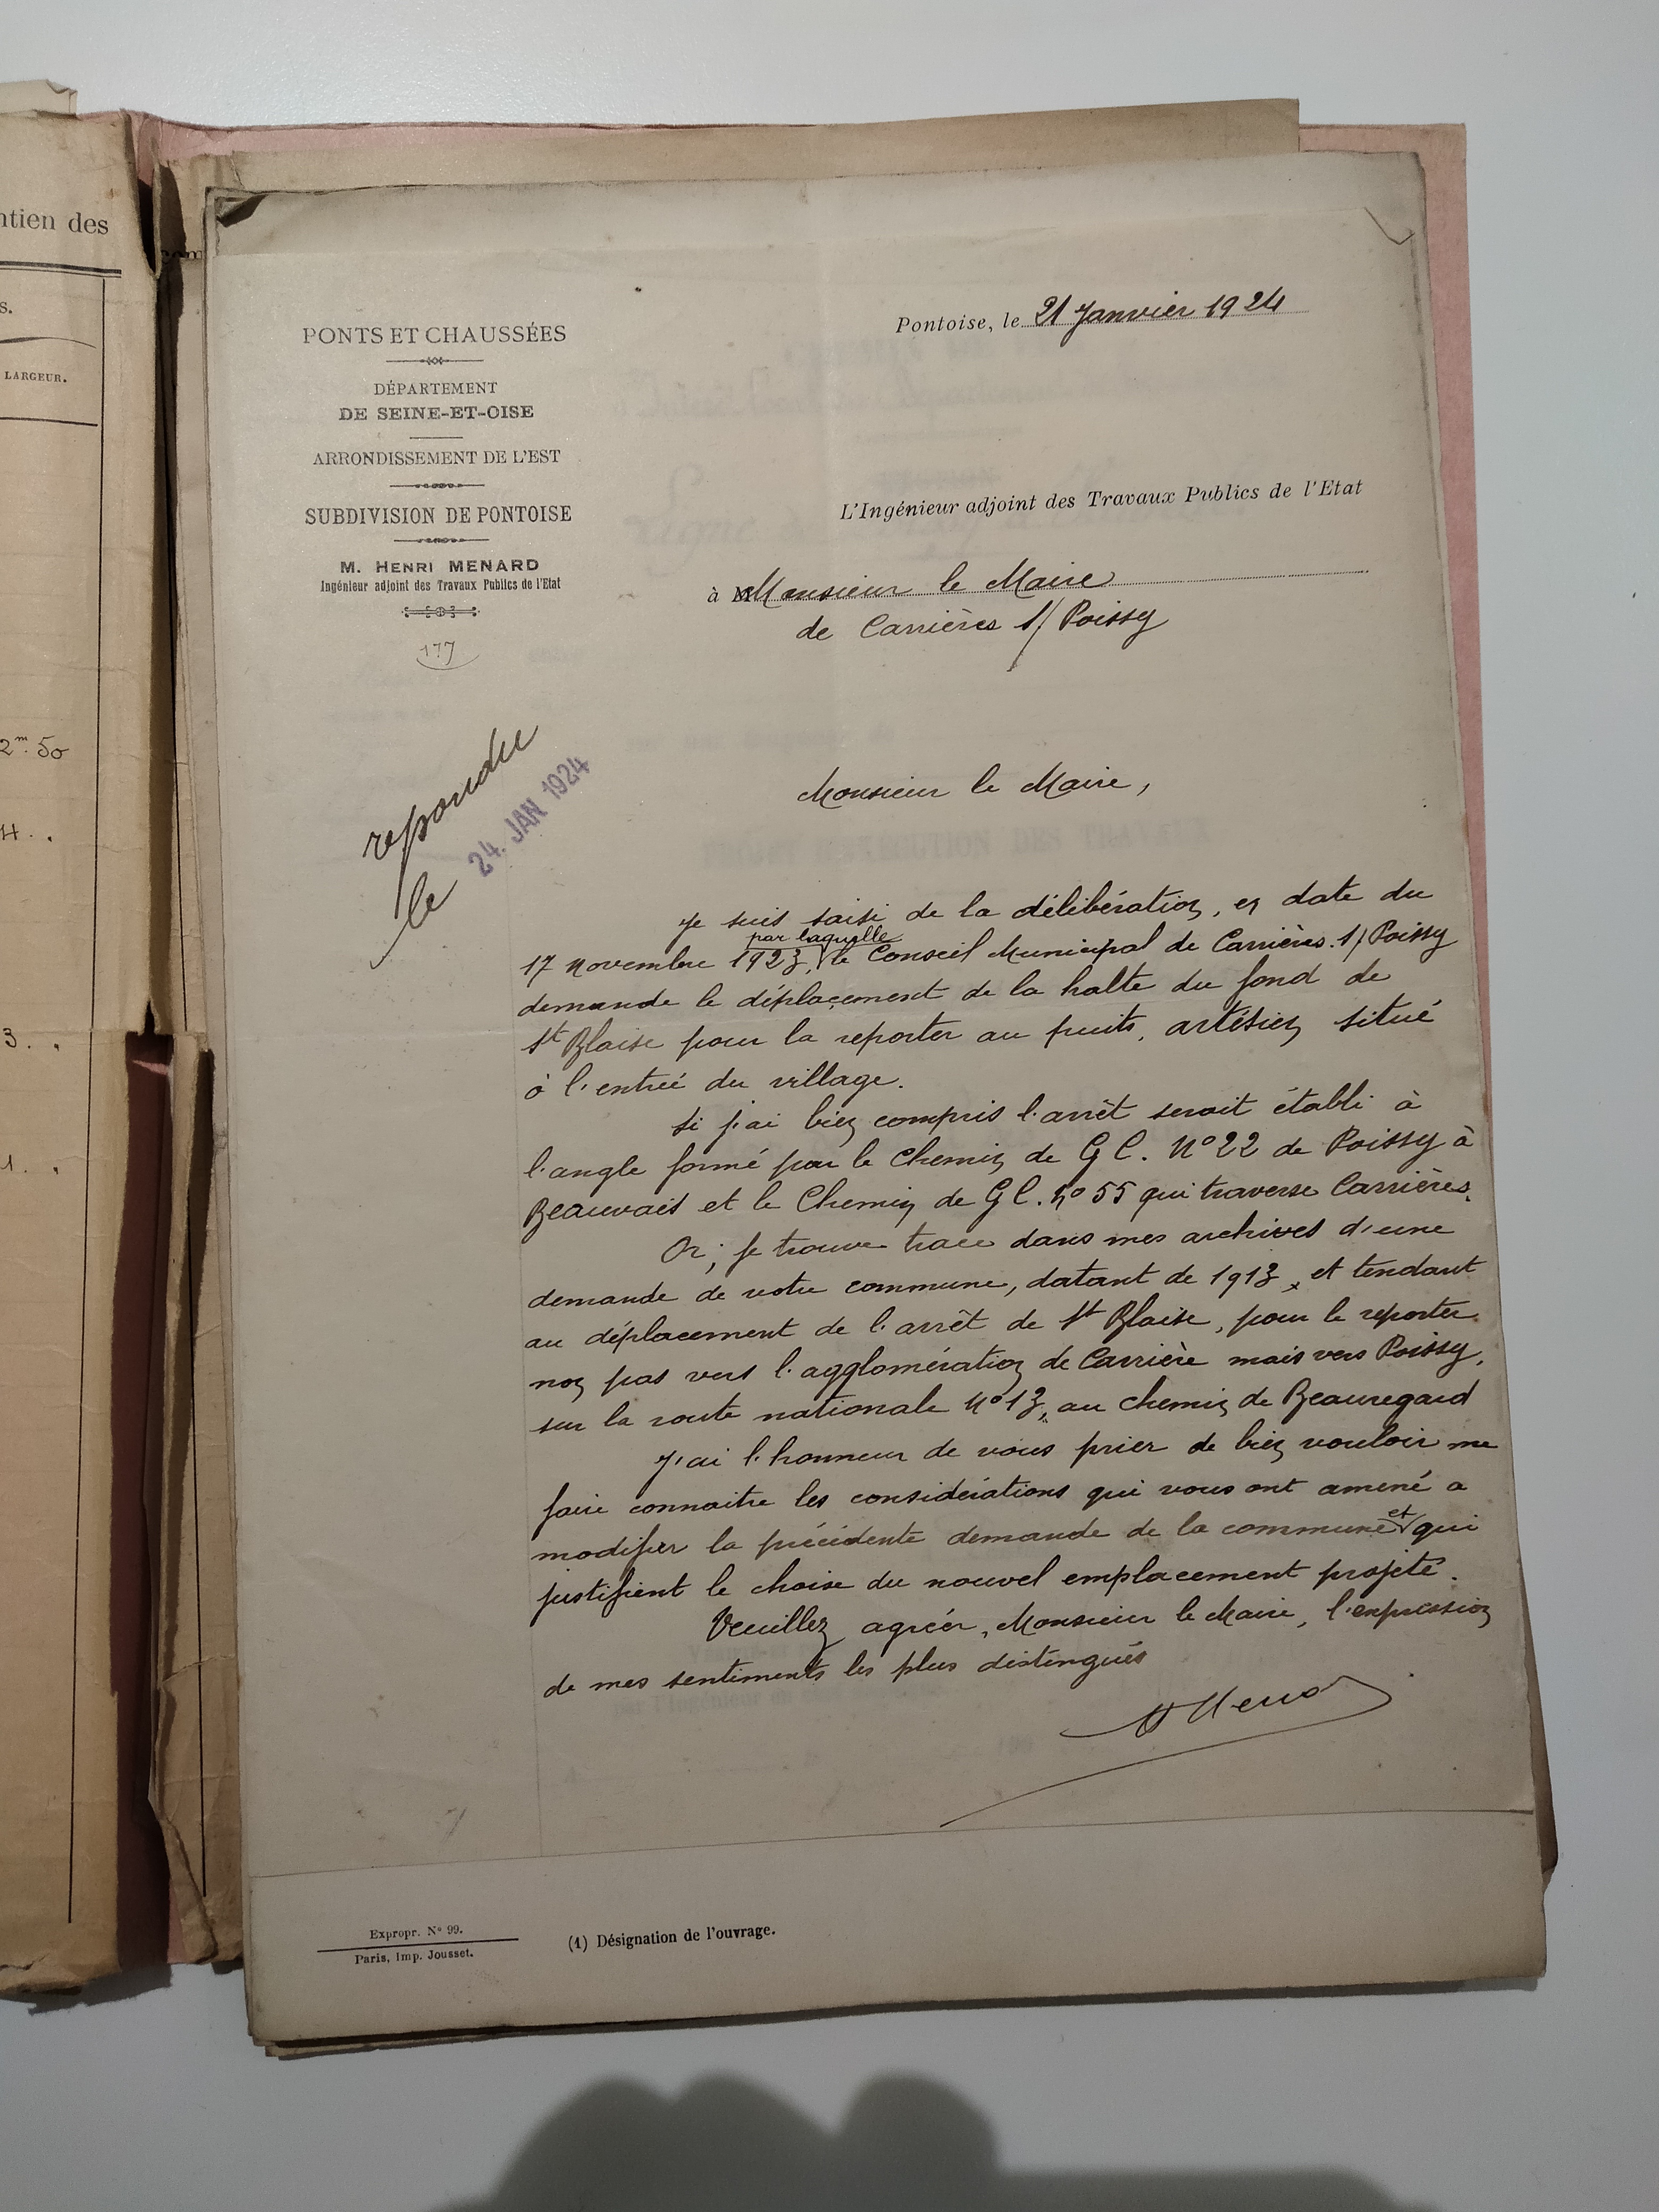 ntien des
s.
LARGEUR.
2m. 50
4. .
3. .
1. .
PONTS ET CHAUSSÉES
DÉPARTEMENT
DE SEINE-ET-OISE
ARRONDISSEMENT DE L'EST
SUBDIVISION DE PONTOISE
M. HENRI MENARD
Ingénieur adjoint des Travaux Publics de l'Etat
177
repondu
le 24. JAN 1924
Pontoise, le 21 Janvier 1924
L'Ingénieur adjoint des Travaux Publics de l'Etat
à M Monsieur le Maire
de Carrières s/ Poissy
Monsieur le Maire,
Je suis saisi de la délibération, en date du
17 novembre 1923, par laquelle le Conseil Municipal de Carrières s/ Poissy
demande le déplacement de la halte du fond de
St Blaise pour la reporter au puits, artésien situé
à l'entrée du village.
Si j'ai bien compris l'arrêt serait établi à
l'angle formé par le Chemin de G C. N° 22 de Poissy à
Beauvais et le Chemin de G C. n° 55 qui traverse Carrières.
Or, je trouve trace dans mes archives d'une
demande de votre commune, datant de 1913, et tendant
au déplacement de l'arrêt de St Blaise, pour le reporter
non pas vers l'agglomération de Carrière mais vers Poissy,
sur la route nationale N° 13, au chemin de Beauregard
J'ai l'honneur de vous prier de bien vouloir me
faire connaitre les considérations qui vous ont amené a
modifier la précédente demande de la commune et qui
justifient le choise du nouvel emplacement projeté.
Veuillez agréer, Monsieur le Maire, l'expression
de mes sentiments les plus distingués
Expropr. N° 99.
Paris, Imp. Jousset.
(1) Désignation de l'ouvrage.